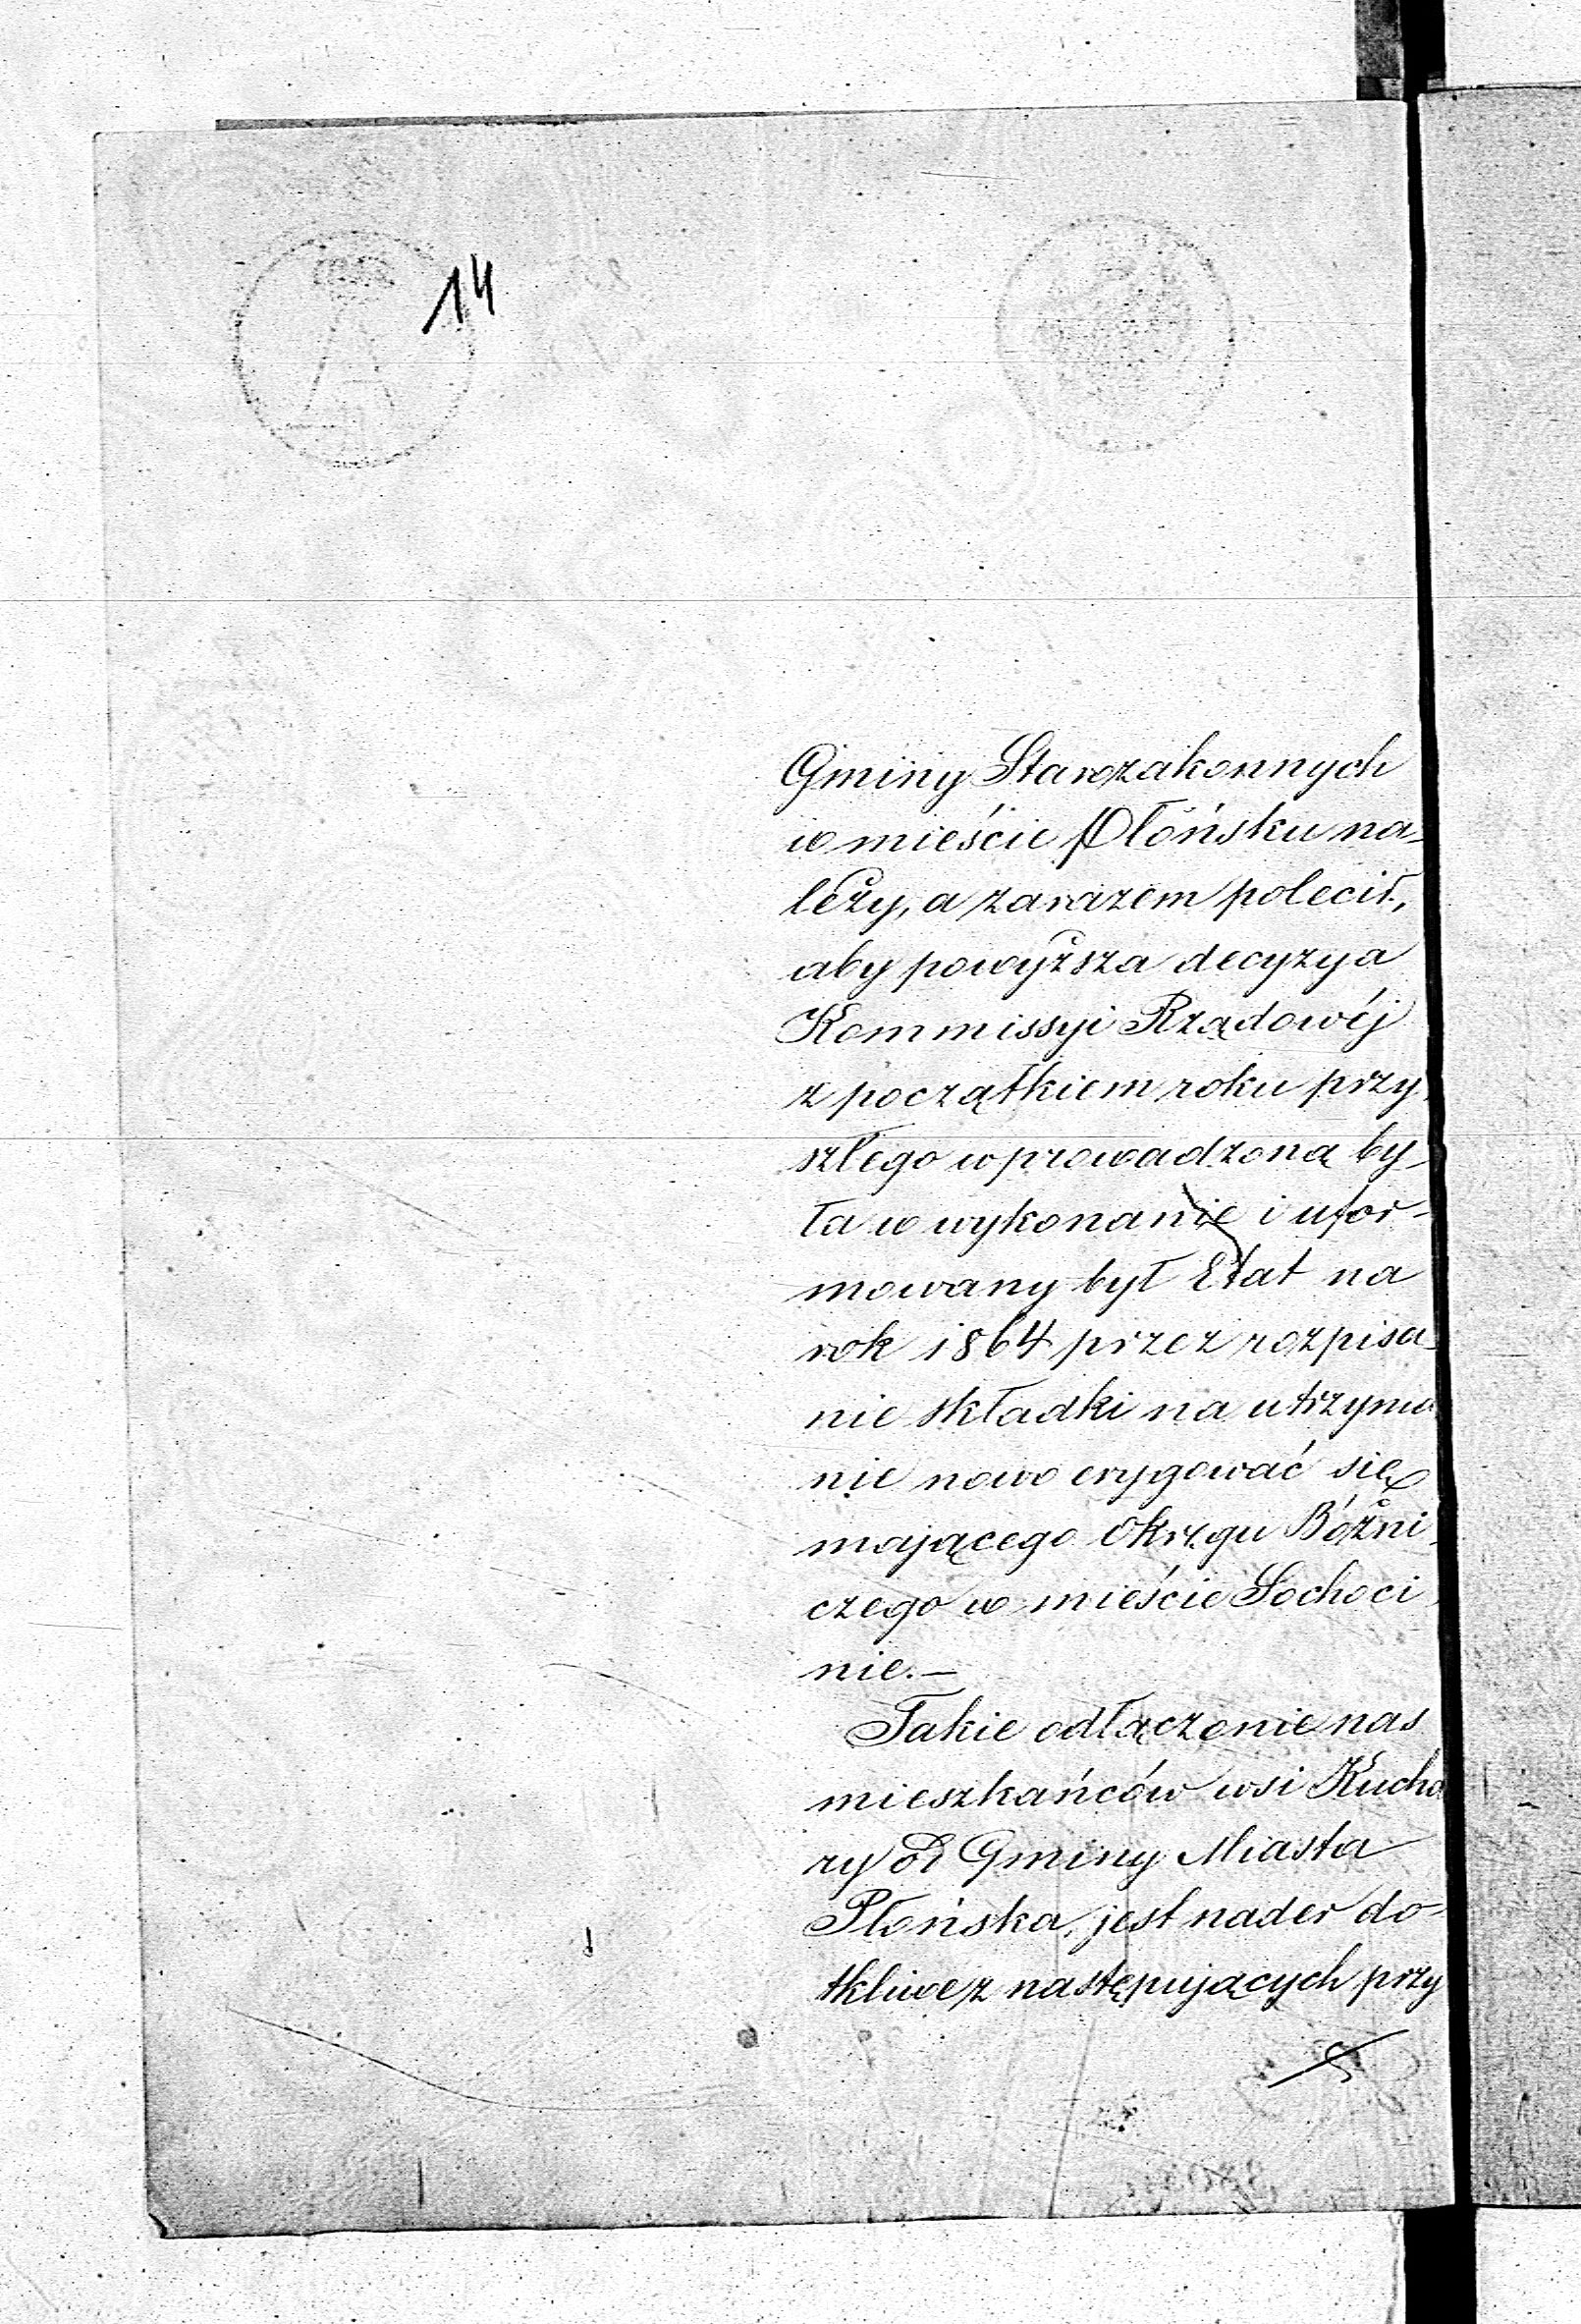 14
Gminy Starozakonnych
w mieście Płońsku na-
leży, a zarazem polecił,
aby powyższa decyzya
Kommissyi Rządowéj
z początkiem roku przy
szłego wprowadzoną by-
ła w wykonanie i ufor-
mowany był Etat na
rok 1864 przez rozpisa
nie składki na utrzyma
nie nowo erygować się
mającego Okręgu Bóżni
czego w mieście Sochoci
nie.—
Takie odłączenie nas
mieszkańców wsi Kucha
ry od Gminy Miasta
Płońska, jest nader do-
tkliwe z następujących przy